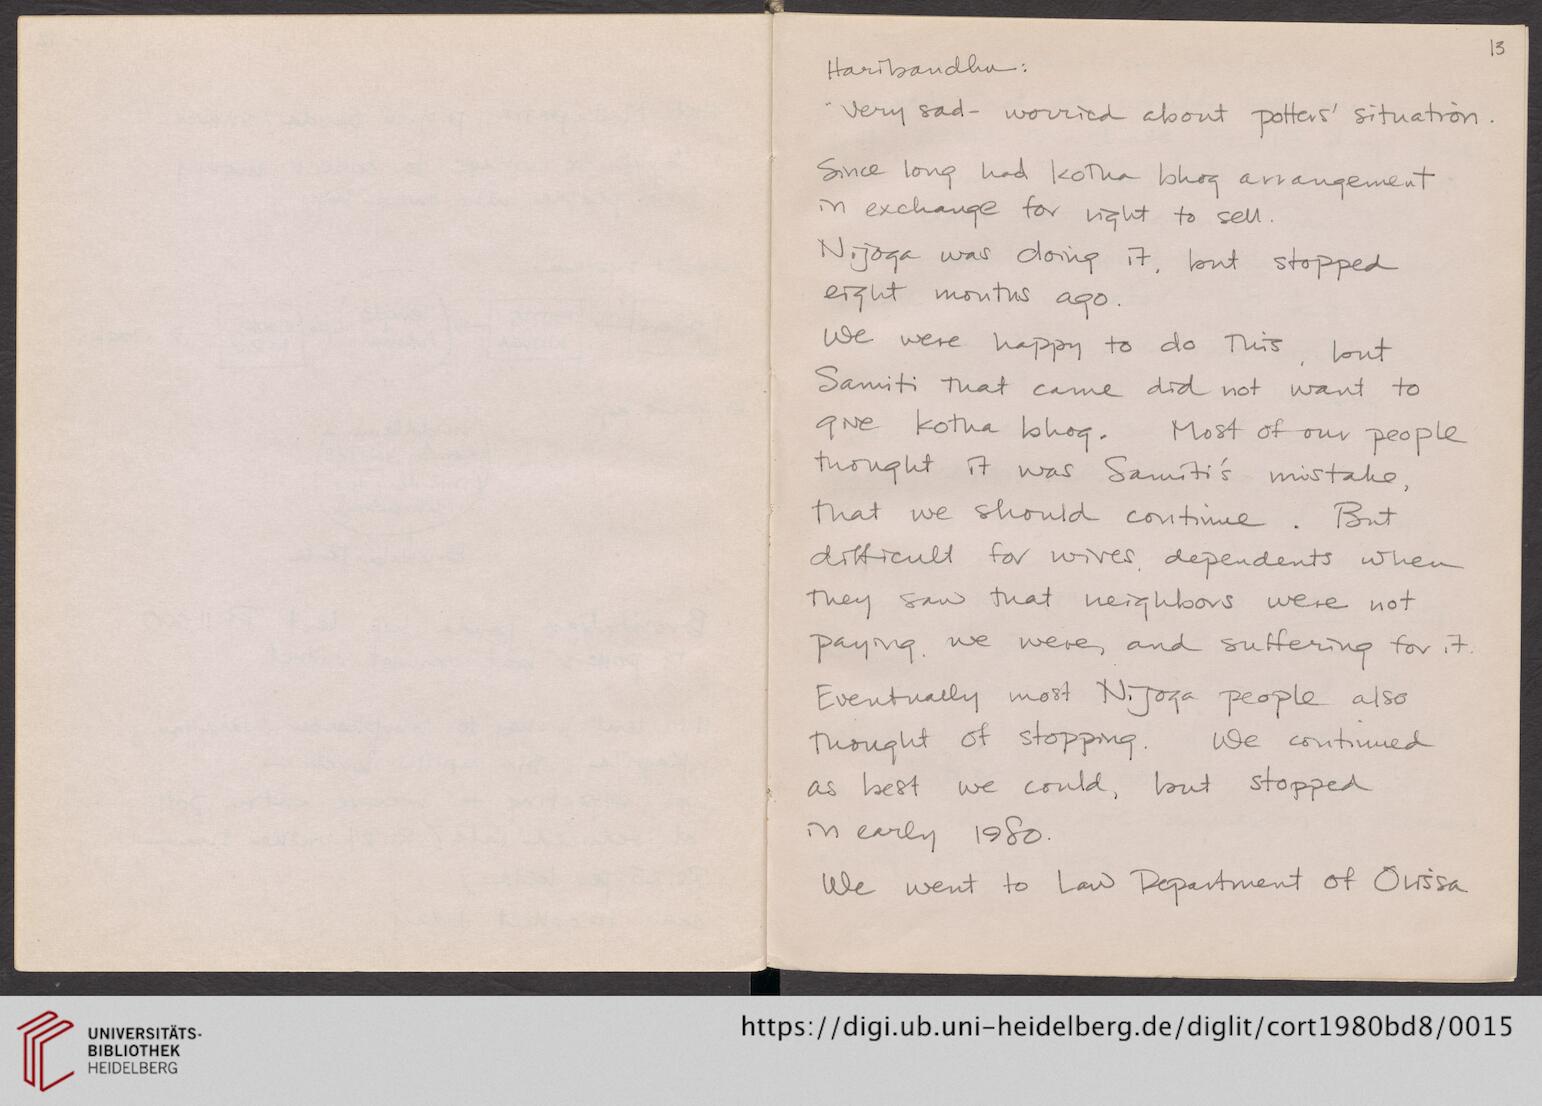 13
Haribandhu:
"Very sad - worried about potters' situation.
Since long had kotha bhog arrangement
in exchange for right to sell.
Nijoga was doing it, but stopped
eight months ago.
We were happy to do this, but
Samiti that came did not want to
give kotha bhog. Most of our people
thought it was Samiti's mistake,
that we should continue. But
difficult for wives, dependents when
they saw that neighbors were not
paying, we were, and suffering for it.
Eventually most Nijoga people also
thought of stopping. We continued
as best we could, but stopped
in early 1980.
We went to Law Department of Orissa
UNIVERSITÄTS-
BIBLIOTHEK
HEIDELBERG
https://digi.ub.uni-heidelberg.de/diglit/cort1980bd8/0015